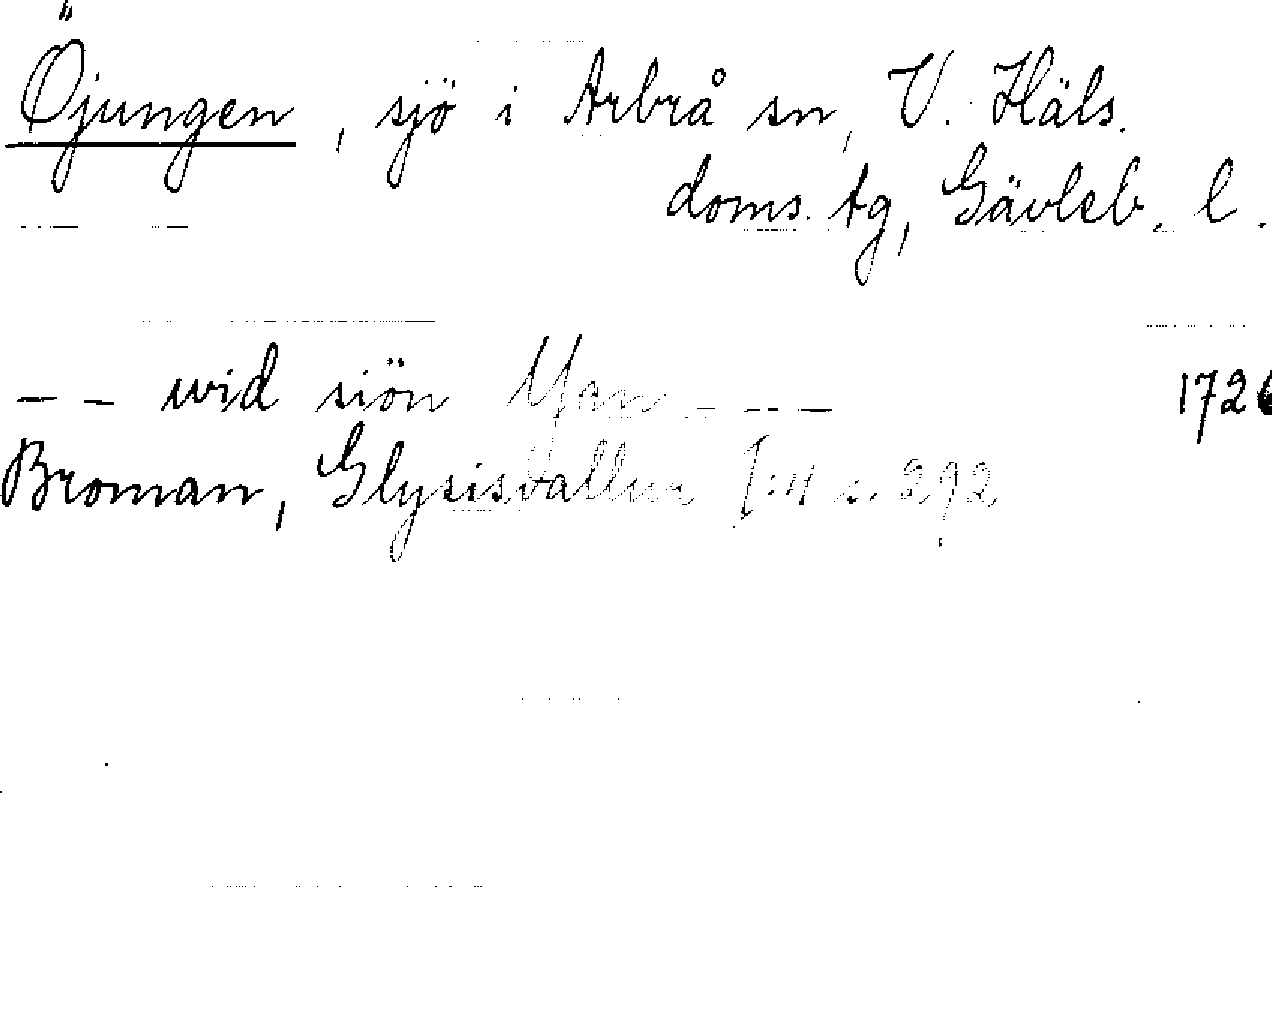 Öjungen, sjö i Arbrå sn, V. Häls.
doms. tg, Gävleb. l.
– – wid siön Yan – – – 1726
Broman, Glysisvallur I:4 s. 292